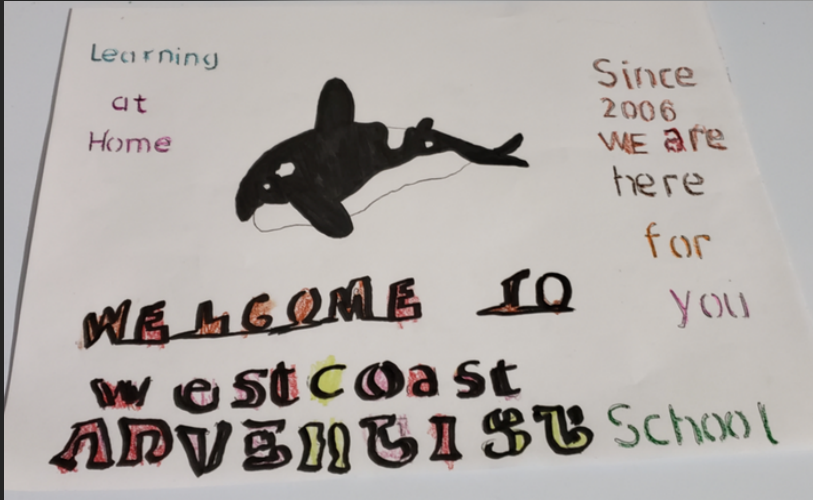 Learning
at
Home
Since
2006
WE are
here
for
you
WELCOME TO
westcoast
ADVENTIST School